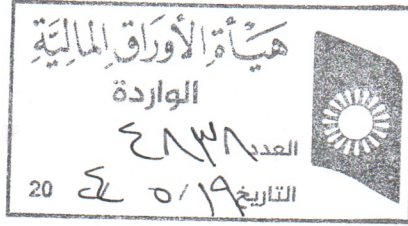 هيأة الأوراق المالية
الواردة
العدد ٤٨٣٨
التاريخ ١٩/ ٥ 20